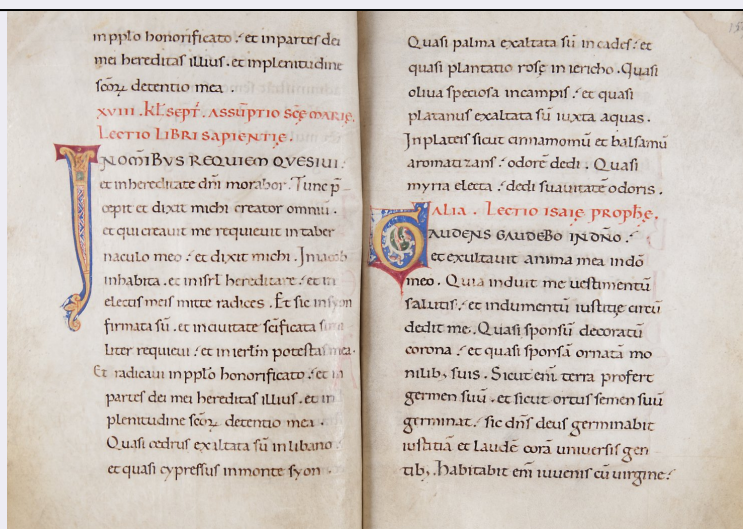 in pplo honorificato. et in partes dei
mei hereditas illius. et in plenitudine
scōꝝ detentio mea.
XVIII. KL. SEPT. ASSŪPTIO SCE MARIE.
LECTIO LIBRI SAPIENTIE.
INOMĪBVS REQUIEM QVESIVI:
et in hereditate dn̄i morabor. Tunc p̄
cepit et dixit michi creator omniū.
et qui creauit me requieuit in taber
naculo meo. et dixit michi. In iacob
inhabita. et in isrl̄ hereditare. et in
electis meis mitte radices. Et sic in syon
firmata sū. et in ciuitate sc̄ificata simi
liter requieui. et in ierl̄m potestas mea.
Et radicaui in pplō honorificato. et in
partes dei mei hereditas illius. et in
plenitudine scōꝝ detentio mea.
Quasi cedrus exaltata sū in libano.
et quasi cypressus in monte syon.
Quasi palma exaltata sū in cades. et
quasi plantatio rosę in iericho. Quasi
oliua speciosa in campis. et quasi
platanus exaltata sū iuxta aquas.
In plateis sicut cinnamomū et balsamū
aromatizans. odorē dedi. Quasi
myrra electa. dedi suauitatē odoris.
ALIA. LECTIO ISAIE PROPHE.
GAUDENS GAUDEBO IN DN̄O.
et exultauit anima mea in dō
meo. Quia induit me uestimentū
salutis. et indumentū iustitię circū
dedit me. Quasi sponsū decoratū
corona. et quasi sponsā ornatā mo
nilib; suis. Sicut enī terra profert
germen suū. et sicut ortus semen suū
germinat. sic dn̄s deus germinabit
iustitiā et laudē corā uniuersis gen
tib;. Habitabit enī iuuenis cū uirgine.